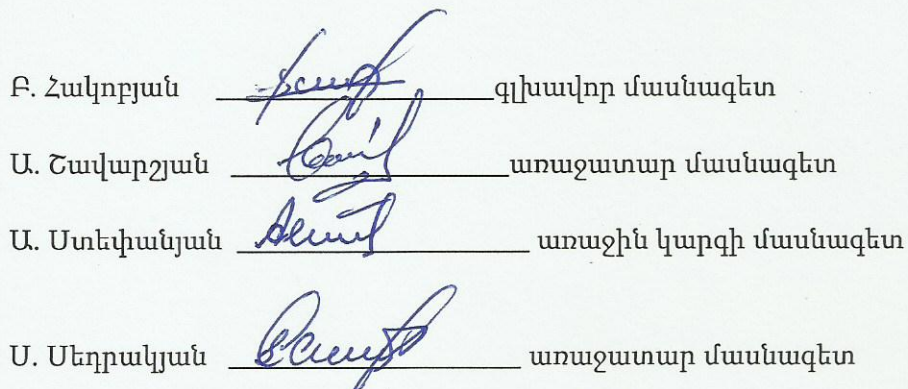 Բ. Հակոբյան գլխավոր մասնագետ
Ա. Շավարշյան առաջատար մասնագետ
Ա. Ստեփանյան առաջին կարգի մասնագետ
Ս. Սեդրակյան առաջատար մասնագետ